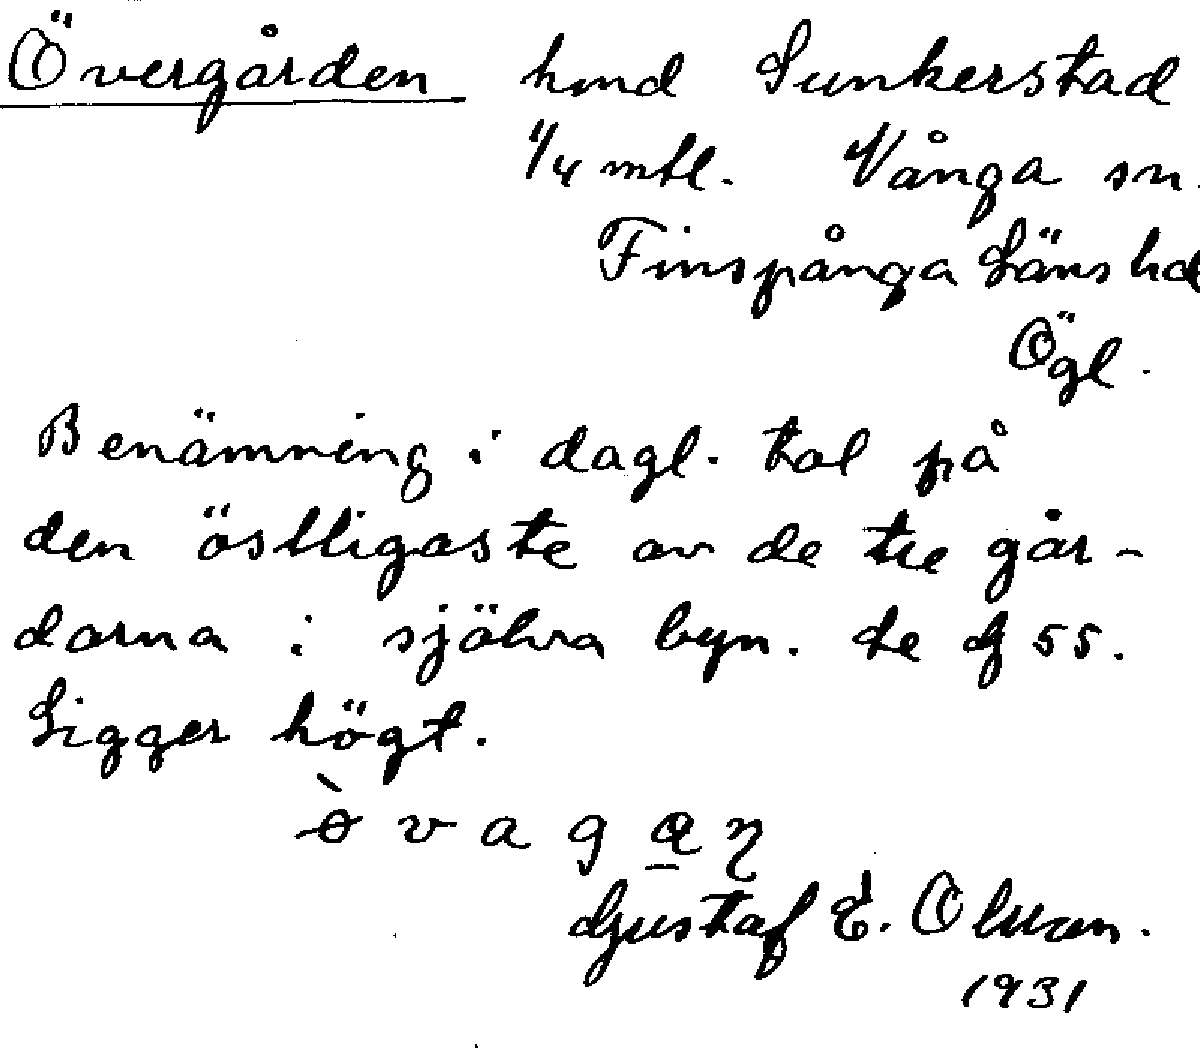 Övergården hmd Sunkerstad
1/4 mtl. Vånga sn.
Finspånga Läns hd
Ögl.
Benämning i dagl. tal på
den östligaste av de tre går-
darna i själva byn. te 55.
Ligger högt.
Gustaf E. Olman.
1931